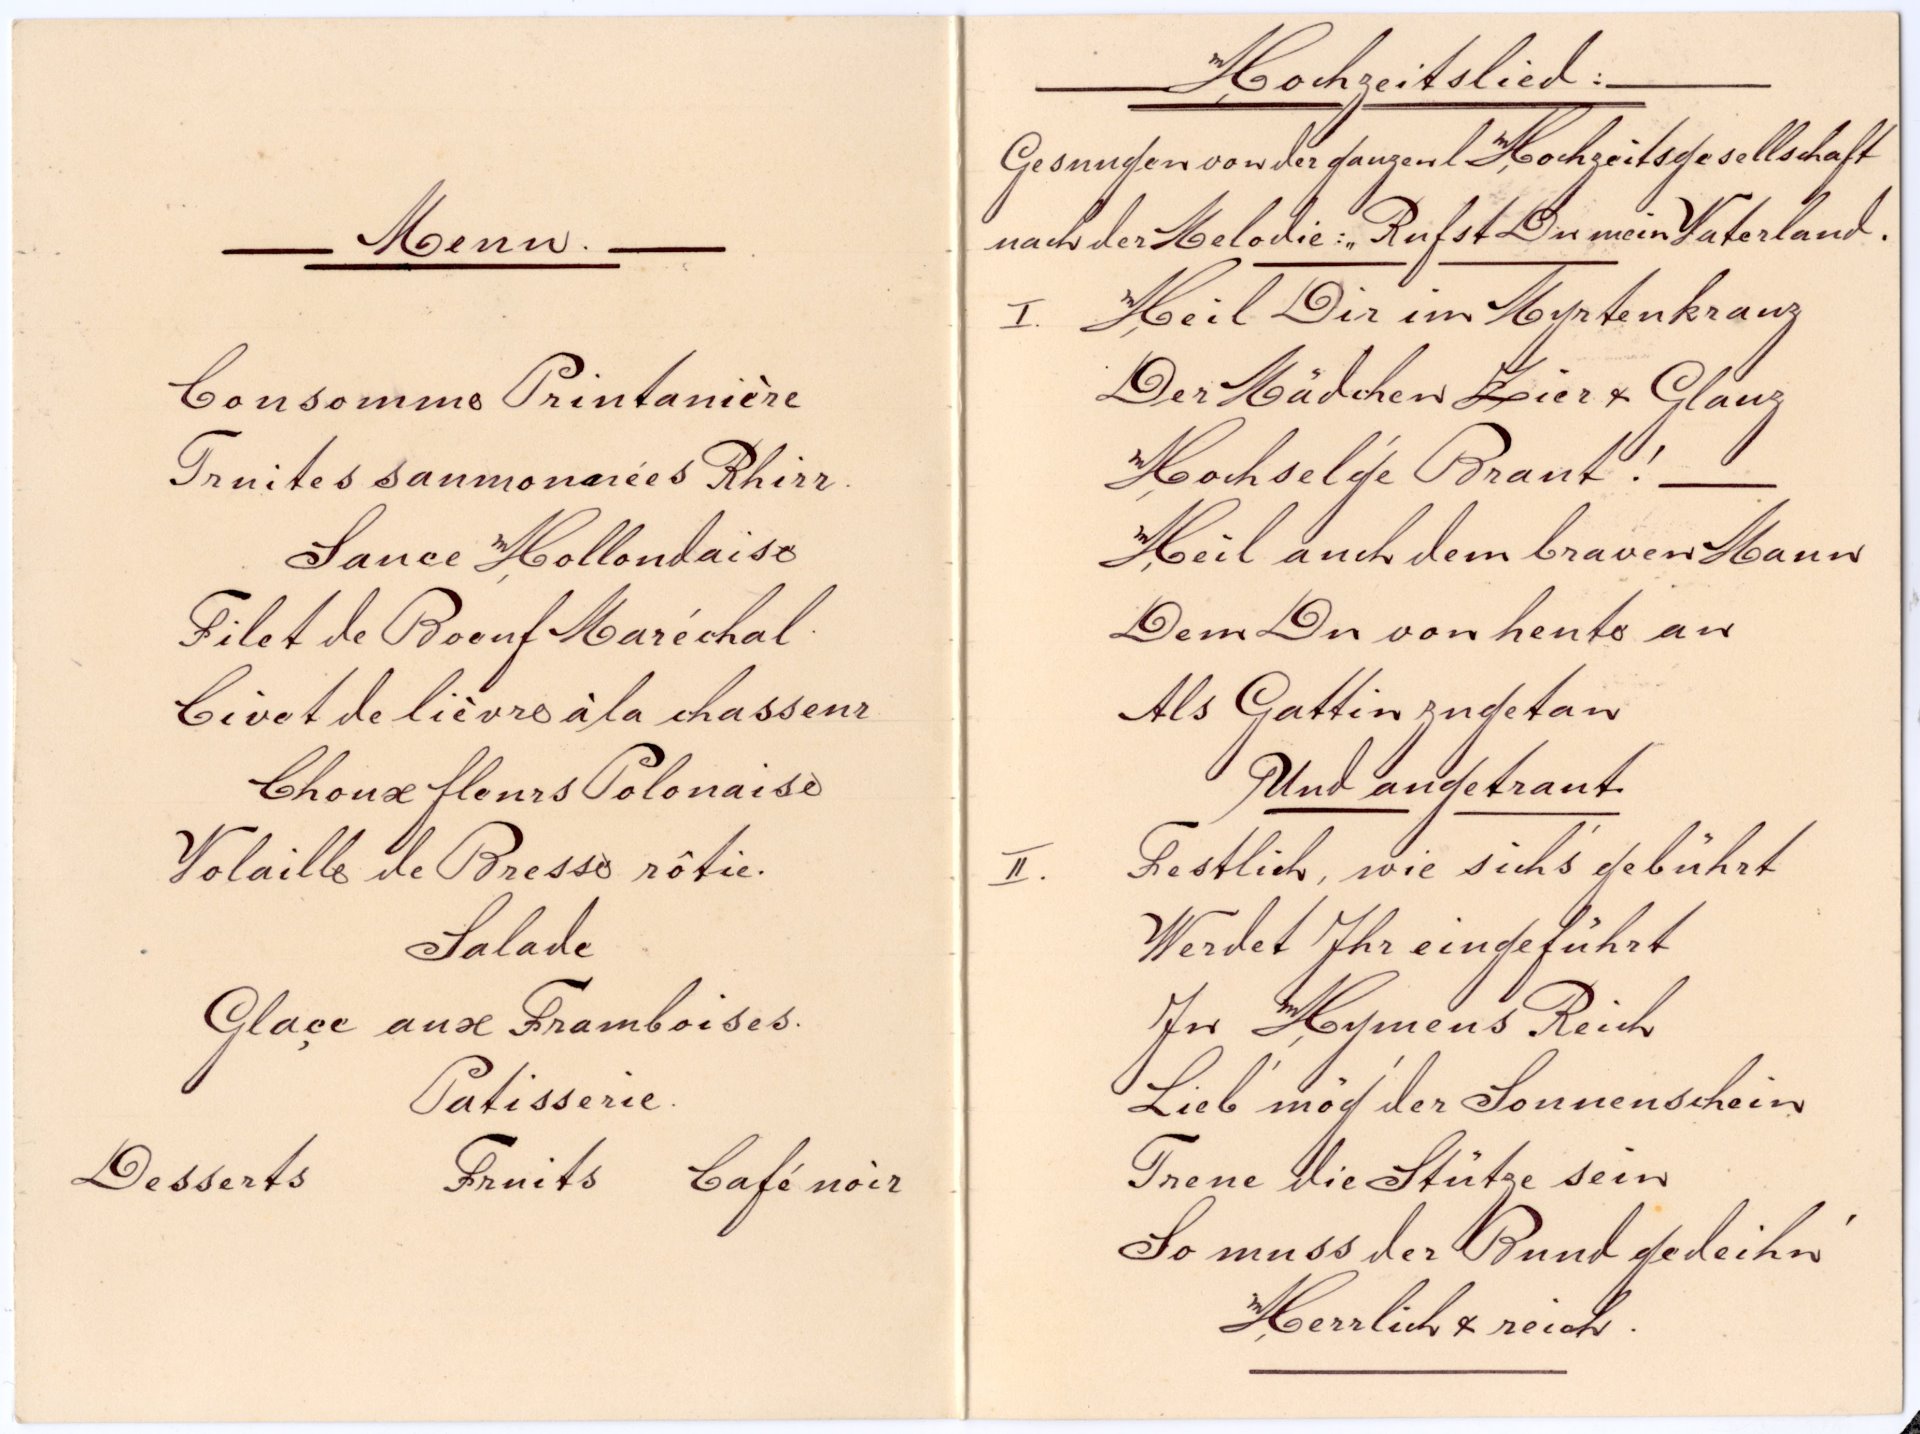 Menu.
Consomme Printanière
Truites saumonnées Rhin.
Sauce Hollondaise
Filet de Boeuf Maréchal.
Civet de lièvre à la chasseur
Choux fleurs Polonaise
Volaille de Bresse rôtie.
Salade
Glaçe aux Framboises.
Patisserie.
Desserts Fruits Café noir
Hochzeitslied:
Gesungen von der ganzen l Hochzeitsgesellschaft
nach der Melodie: „Rufst Du mein Vaterland.
I. Heil Dir im Myrtenkranz
Der Mädchen Zier & Glanz
Hochsel'ge Braut!
Heil auch dem braven Mann
Dem Du von heute an
Als Gattin zugetan
Und angetraut.
II. Festlich, wie sich's gebührt
Werdet Ihr eingeführt
In Hymens Reich
Lieb' mög' der Sonnenschein
Treue die Stütze sein
So muss der Bund gedeihn'
Herrlich & reich.